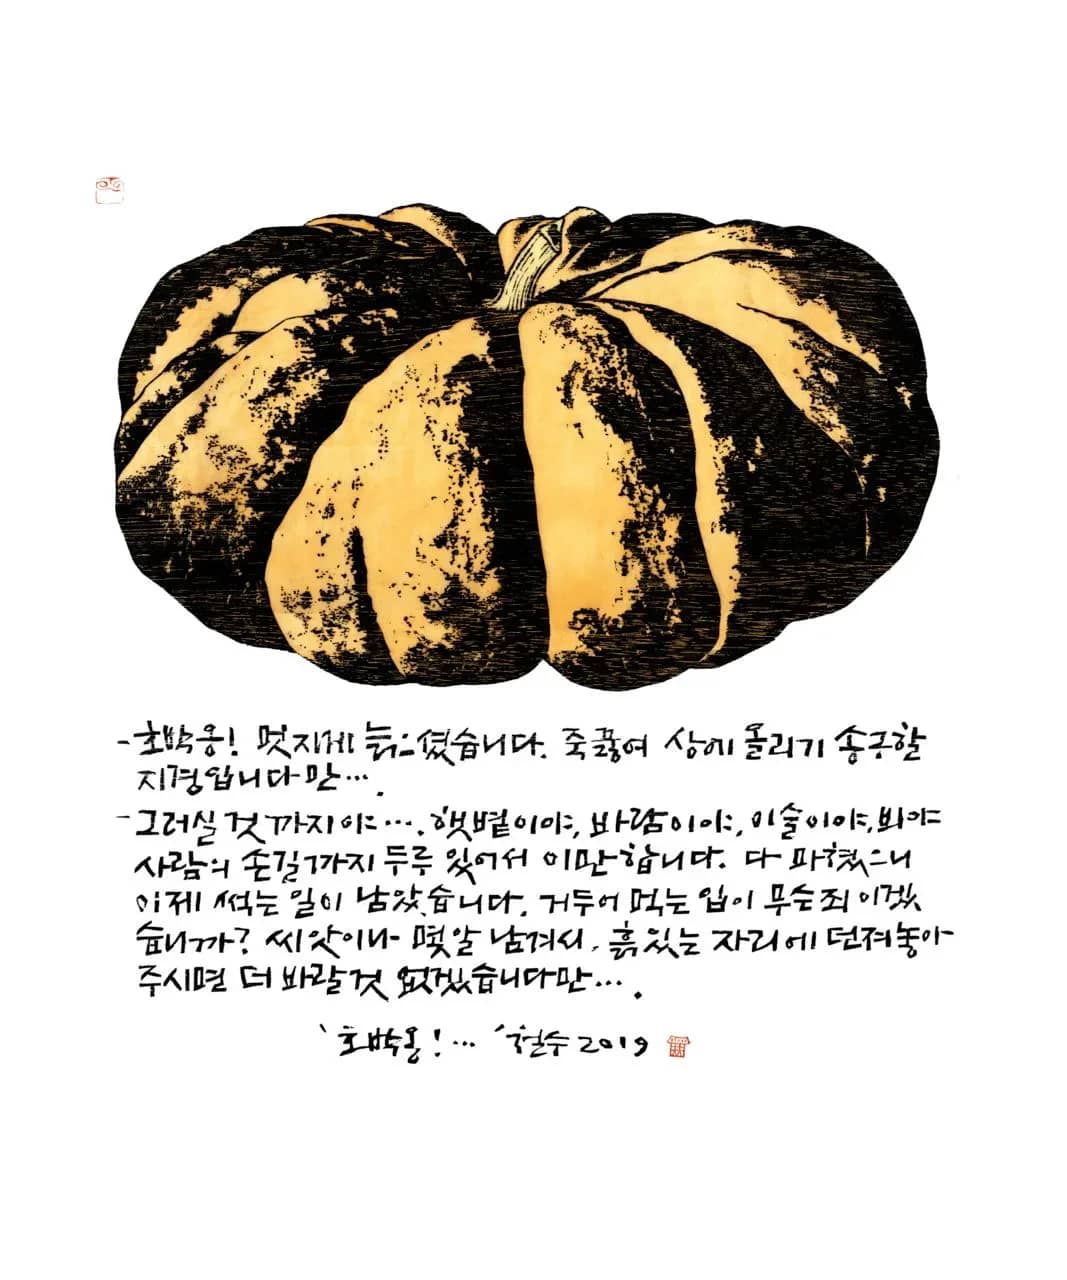 - 호박옹! 멋지게 늙으셨습니다. 죽끓여 상에 올리기 송구할
지경입니다만….
- 그러실 것 까지야…. 햇볕이야, 바람이야, 이슬이야, 비야
사람의 손길까지 두루 있어서 이만합니다. 다 파했으니
이제 썩는 일이 남았습니다. 거두어 먹는 입이 무슨죄이겠
습니까? 씨앗이나 몇알 남겨서, 흙있는 자리에 던져놓아
주시면 더 바랄것 없겠습니다만….
'호박옹!…' 철수 2019